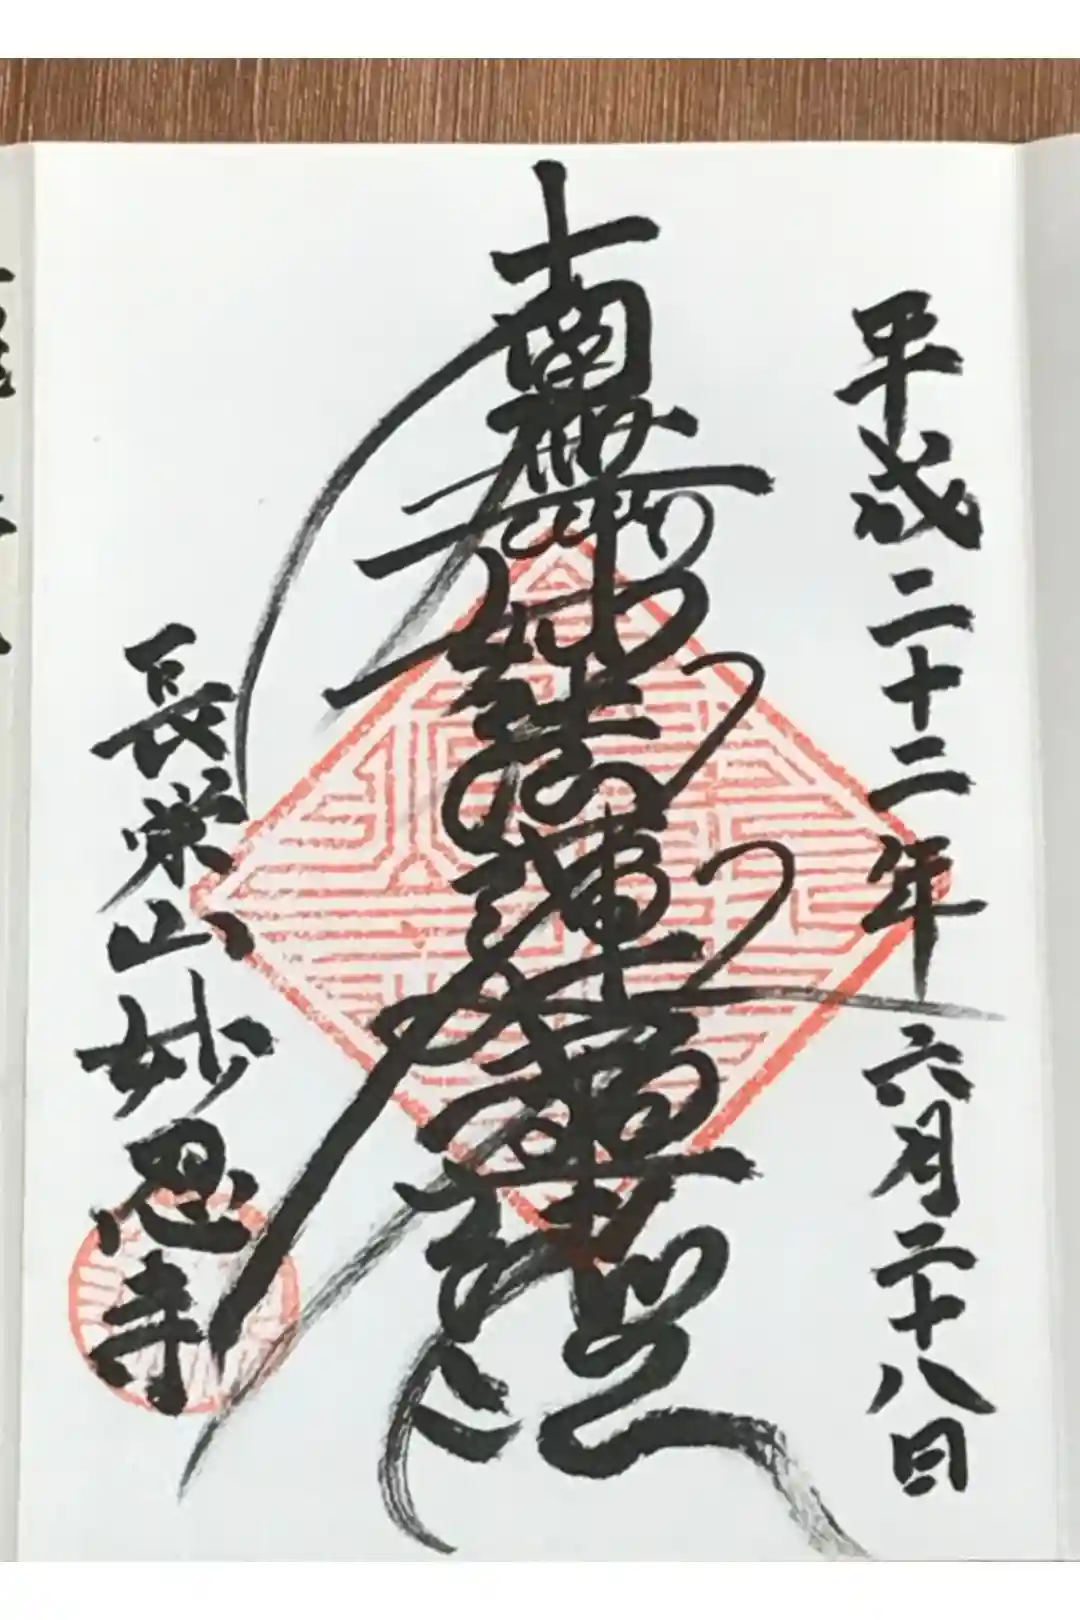 平成二十二年六月二十八日
南無妙法蓮華経
長栄山妙忍寺